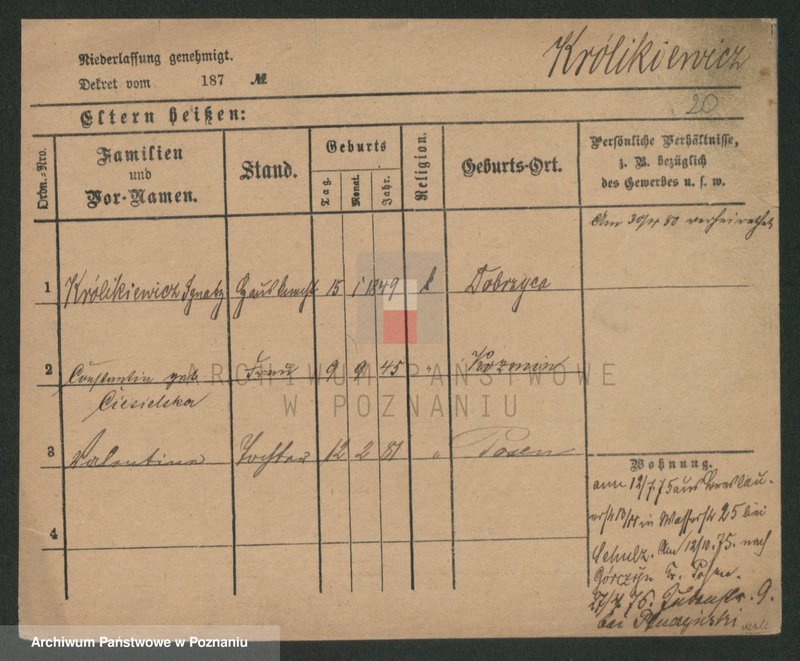 Niederlassung genehmigt.
Dekret vom 187 №
Królikiewicz
20
Eltern heißen:
Ordn.-Nro.
Familien
und
Vor-Namen.
Stand.
Geburts
Tag.
Monat.
Jahr.
Religion.
Geburts-Ort.
Persönliche Verhältnisse,
z. B. bezüglich
des Gewerbes u. s. w.
Am 30/4 80 verheirathet
1 Królikiewicz Ignatz Hausknecht 15 1 1849 k Dobrzyca
2 Constantia geb Frau 9 9 45 " Kozmin
Ciesielska
3 Valentine Tochter 12 2 81 " Posen
4
Wohnung.
am 12/7.75 aus Breslau
in Wasserstr 25 bei
Schulz. Am 12/10.75. nach
Górczyn Kr. Posen.
76. Judenstr. 9.
bei
ARCHIWUM PAŃSTWOWE
W POZNANIU
Archiwum Państwowe w Poznaniu